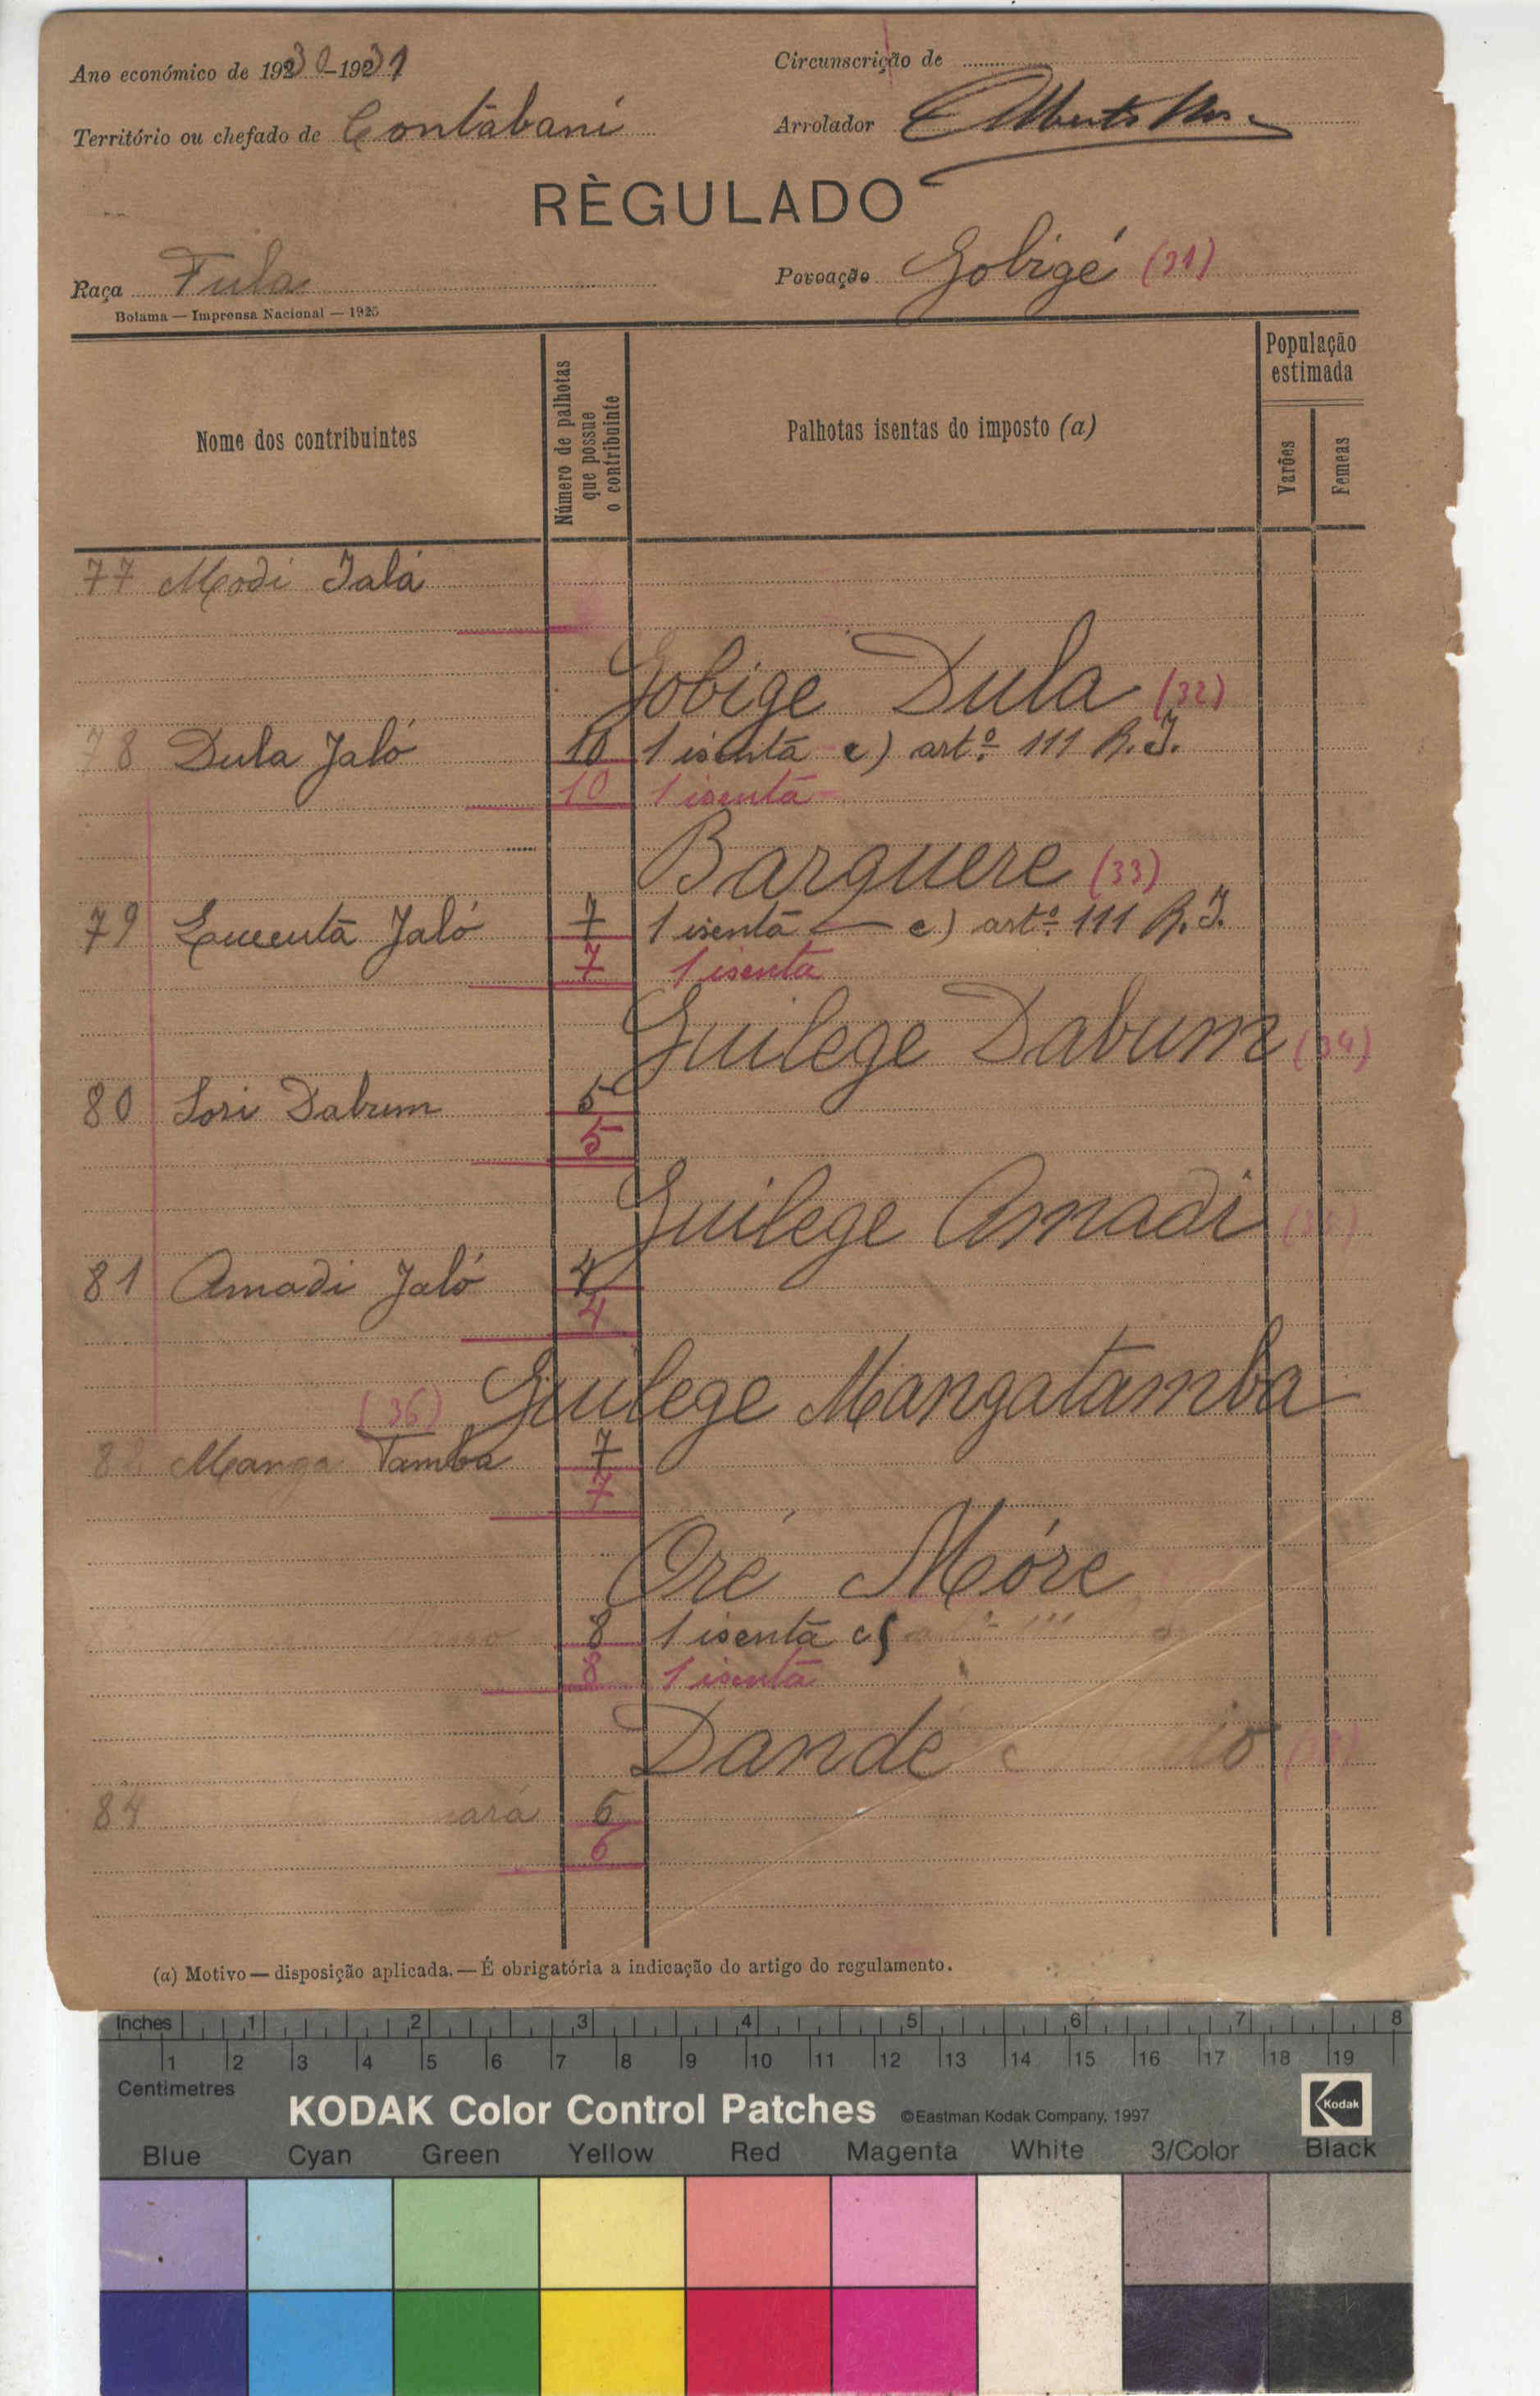 Ano económico de 1930-1931
Circunscrição de
Território ou chefado de Contabani
Arrolador
RÈGULADO
Raça Fula
Povoação Gobigé (31)
Bolama — Imprensa Nacional — 1925
Nome dos contribuintes
Número de palhotas que possue o contribuinte
Palhotas isentas do imposto (a)
População estimada
Varões
Femeas
77 Modi Jaló
Gobige Dula (32)
78 Dula Jaló 10 1 isenta c) artº 111 R.I.
10 1 isenta
Barquere (33)
79 Jaló 7 1 isenta — c) artº 111 R.I.
7 1 isenta
Guilege Dabum (34)
80 Sori Dabum 5
5
Guilege Amadi
81 Amadi Jaló 4
4
(36) Guilege Mangatamba
82 Manga Tamba 7
7
Oré Móre
8 1 isenta c)
8 1 isenta
Dandé
84 6
6
(a) Motivo — disposição aplicada. — É obrigatória a indicação do artigo do regulamento.
Inches 1 2 3 4 5 6 7 8
1 2 3 4 5 6 7 8 9 10 11 12 13 14 15 16 17 18 19
Centimetres
KODAK Color Control Patches ©Eastman Kodak Company, 1997 Kodak
Blue Cyan Green Yellow Red Magenta White 3/Color Black